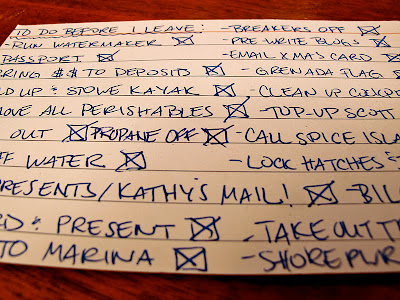 TO DO BEFORE I LEAVE: -BREAKERS OFF
-RUN WATERMAKER -PRE-WRITE BLOGS
PASSPORT -EMAIL XMAS CARD
BRING $$ TO DEPOSIT -GRENADA FLAG
LD UP & STOWE KAYAK -CLEAN UP COCKP
OVE ALL PERISHABLES -TOP-UP SCOTT
OUT PROPANE OFF -CALL SPICE ISLA
FF WATER -LOCK HATCHES &
PRESENTS/KATHY'S MAIL! -BIL
RD & PRESENT -TAKE OUT TR
TO MARINA -SHOREPWR